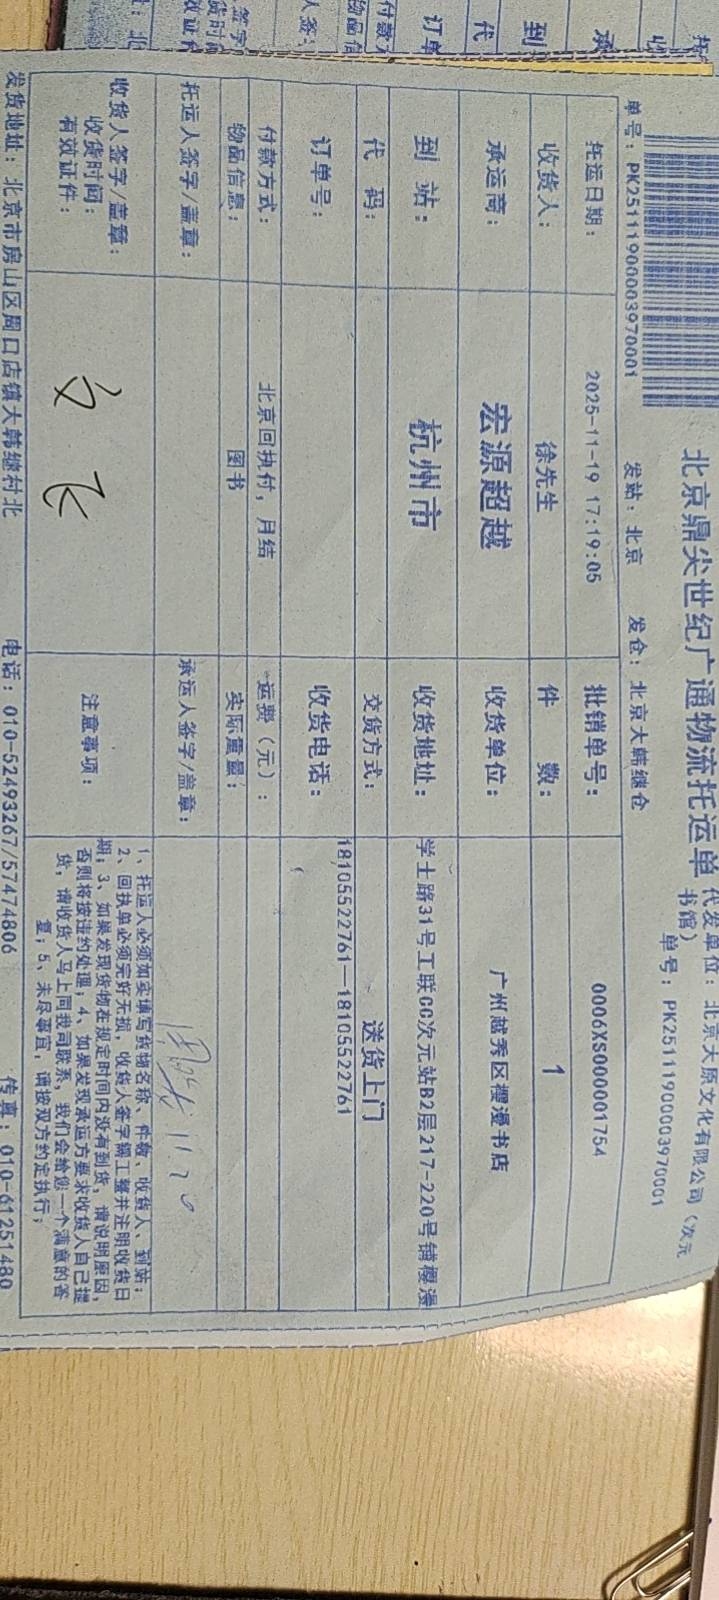 北京鼎尖世纪广通物流托运单
代发单位：北京大原文化有限公司（次元书馆）
单号：PK25111900003970001
单号：PK25111900003970001
发站：北京
发仓：北京大韩继仓
托运日期：
2025-11-19 17:19:05
批销单号：
0006XS000001754
收货人：
徐先生
件 数：
1
承运商：
宏源超越
收货单位：
广州越秀区樱漫书店
到 站：
杭州市
收货地址：
学士路31号工联CC次元站B2层217-220号铺樱漫
代 码：
交货方式：
送货上门
订单号：
收货电话：
18105522761—18105522761
付款方式：
北京回执付，月结
运费（元）：
物品信息：
图书
实际重量：
托运人签字/盖章：
承运人签字/盖章：
11.20
收货人签字/盖章：
收货时间：
有效证件：
注意事项：
1、托运人必须如实填写货物名称、件数、收货人、到站；
2、回执单必须完好无损，收货人签字辆工整并注明收货日
期；3、如果发现货物在规定时间内没有到货，请说明原因，
否则将按违约处理；4、如果发现承运方要求收货人自己提
货，请收货人马上同我司联系，我们会给您一个满意的答
复；5、未尽事宜，请按双方约定执行；
发货地址：北京市房山区周口店镇大韩继村北
电话：010-52493267/57474806
传真：010-61251480